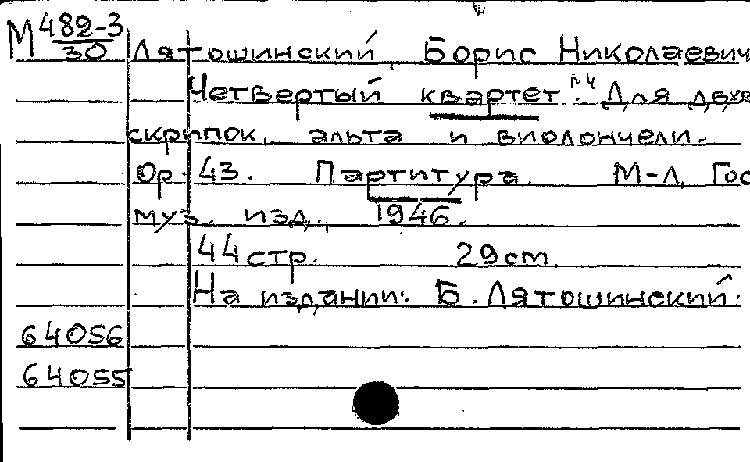 М 482-3/30 Лятошинский, Борис Николаевич
Четвертый квартет №4. Для двух
скрипок, альта и виолончели.
Ор. 43. Партитура. М-Л, Гос
муз. изд., 1946.
44 стр. 29 cm.
На издании: Б. Лятошинский.
64056
64055